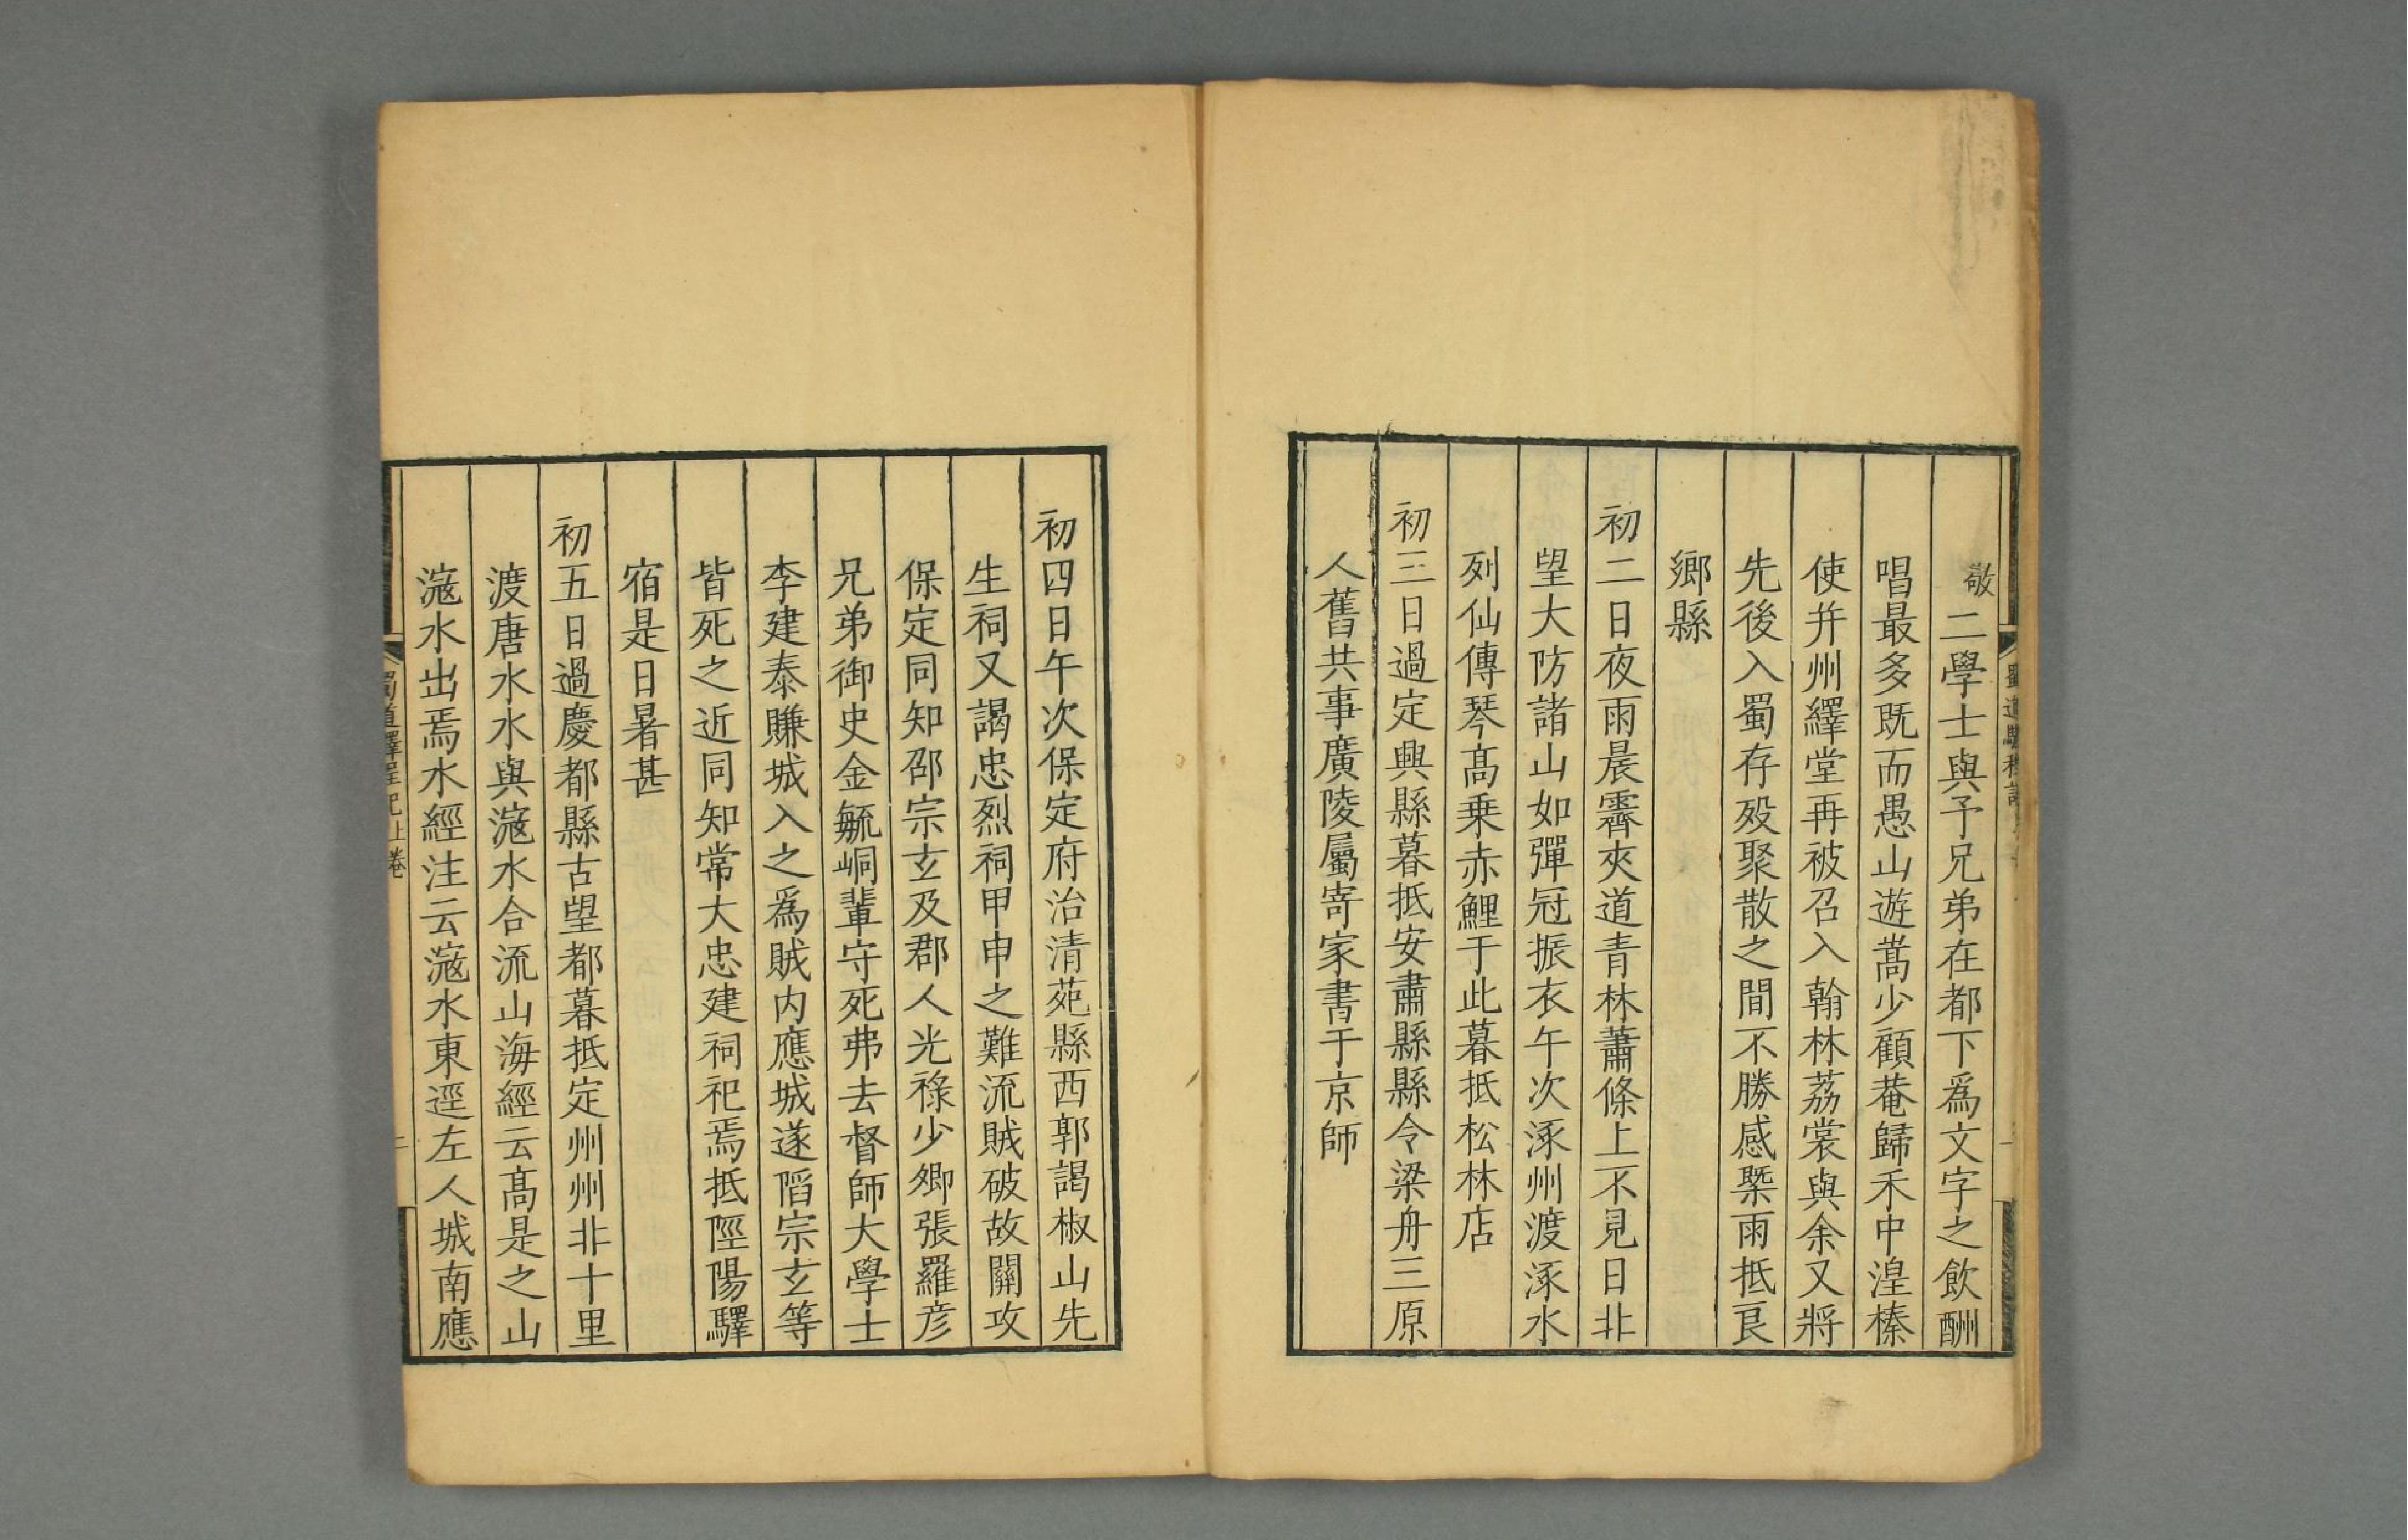 敬二學士與予兄弟在都下爲文字之飲酬
唱最多既而愚山遊嵩少顧菴歸禾中湟榛
使并州繹堂再被召入翰林荔裳與余又將
先後入蜀存歿聚散之間不勝感槩雨抵良
鄉縣
初二日夜雨晨霽夾道青林蕭條上不見日北
望大防諸山如彈冠振衣午次涿州渡涿水
列仙傳琴高乗赤鯉于此暮抵松林店
初三日過定興縣暮抵安肅縣縣令梁舟三原
人舊共事廣陵屬寄家書于京師
初四日午次保定府治清苑縣西郭謁椒山先
生祠又謁忠烈祠甲申之難流賊破故關攻
保定同知邵宗玄及郡人光祿少卿張羅彦
兄弟御史金毓峒輩守死弗去督師大學士
李建泰賺城入之爲賊内應城遂陷宗玄等
皆死之近同知常大忠建祠祀焉抵陘陽驛
宿是日暑甚
初五日過慶都縣古望都暮抵定州州非十里
渡唐水水與滱水合流山海經云高是之山
滱水出焉水經注云滱水東逕左人城南應
蜀道驛程記上卷
二